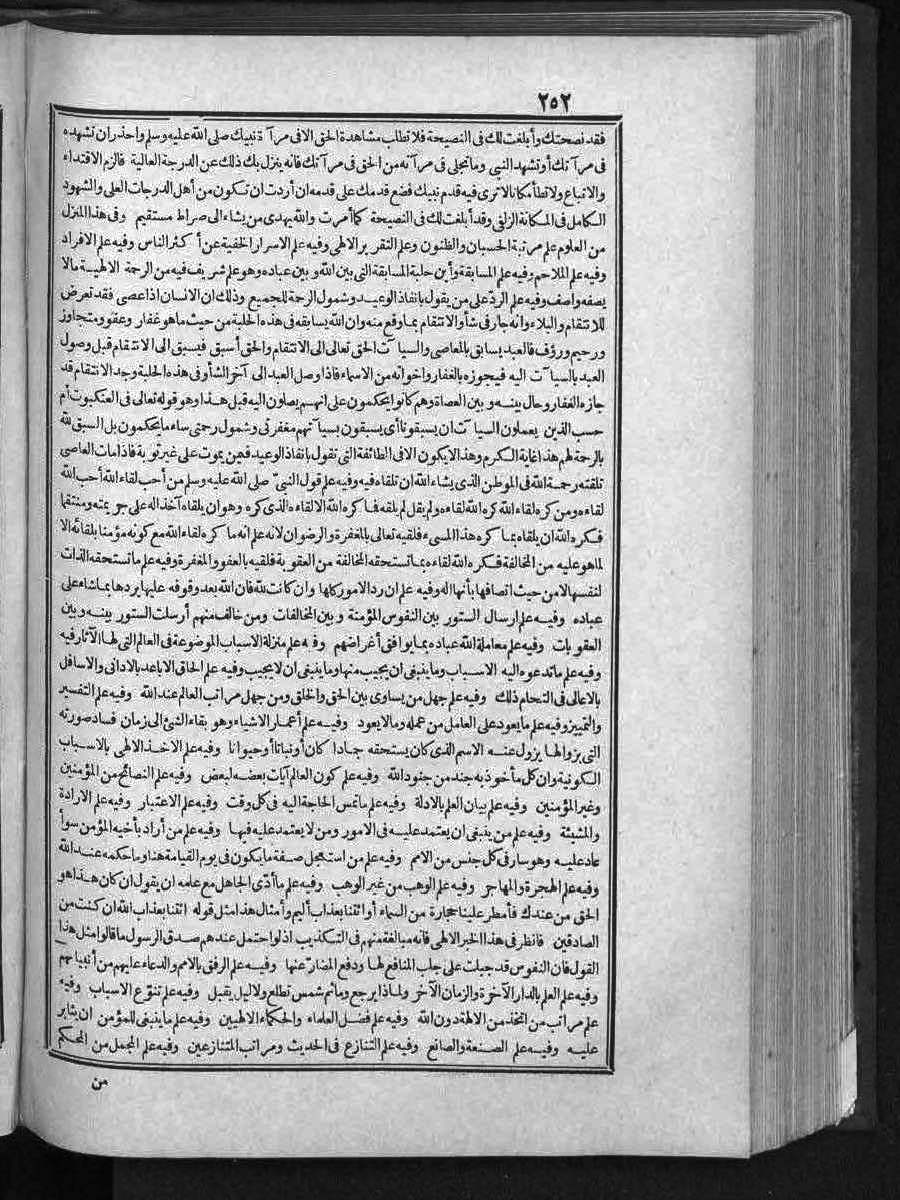 ٢٥٢
فقد نصحتك وأبلغت لك فى النصيحة فلا تطلب مشاهدة الحق الا فى مرآة نبيك صلى الله عليه وسلم واحذر ان تشهده
فى مرآتك أو تشهد النبى وما تجلى فى مرآته من الحق فى مرآتك فانه ينزل بك ذلك عن الدرجة العالية فالزم الاقتداء
والاتباع ولا تطأ مكانا لا ترى فيه قدم نبيك فضع قدمك على قدمه ان أردت ان تكون من أهل الدرجات العلى والشهود
الكامل فى المكانة الزلفى وقد أبلغت لك فى النصيحة كما أمرت والله يهدى من يشاء الى صراط مستقيم وفى هذا المنزل
من العلوم علم مرتبة الحسبان والظنون وعلم التقرير الالهى وفيه علم الاسرار الخفية عن أكثر الناس وفيه علم الافراد
وفيه علم الملاحم وفيه علم المسابقة وأين حلبة المسابقة التى بين الله وبين عباده وهو علم شريف فيه من الرحمة الالهية مالا
يصفه واصف وفيه علم الردّ على من يقول بانفاذ الوعيد وشمول الرحمة للجميع وذلك ان الانسان اذا عصى فقد تعرض
للانتقام والبلاء وانه جار فى شأو الانتقام بما وقع منه وان الله يسابقه فى هذه الحلبة من حيث ما هو غفار وعفو ومتجاوز
ورحيم ورؤف فالعبد يسابق بالمعاصى والسيآت الحق تعالى الى الانتقام والحق أسبق فيسبق الى الانتقام قبل وصول
العبد بالسيآت اليه فيجوزه بالغفار واخوانه من الاسماء فاذا وصل العبد الى آخر الشأو فى هذه الحلبة وجد الانتقام قد
جازه الغفار وحال بينه وبين العصاة وهم كانوا يحكمون على انهم يصلون اليه قبل هذا وهو قوله تعالى فى العنكبوت أم
حسب الذين يعملون السيآت ان يسبقونا أى يسبقون بسيآتهم مغفرتى وشمول رحمتى ساء ما يحكمون بل السبق لله
بالرحمة لهم هذا غاية الكرم وهذا لا يكون الا فى الطائفة التى تقول بانفاذ الوعيد فيمن يموت على غير توبة فاذا مات العاصى
تلقته رحمة الله فى الموطن الذى يشاء الله ان تلقاه فيه وفيه علم قول النبى صلى الله عليه وسلم من أحب لقاء الله أحب الله
لقاءه ومن كره لقاء الله كره الله لقاءه ولم يقل لم يلقه فما كره الله الا لقاءه الذى كره وهو ان يلقاه آخذا له على جريمته ومنتقما
فكره الله ان يلقاه بما كره هذا المسىء فلقيه تعالى بالمغفرة والرضوان لانه علم انه ما كره لقاء الله مع كونه مؤمنا بلقائه الا
لما هو عليه من المخالفة فكره الله لقاءه بما تستحقه المخالفة من العقوبة فلقيه بالعفو والمغفرة وفيه علم ما تستحقه الذات
لنفسها لا من حيث اتصافها بأنها اله وفيه علم ان ردّ الامور كلها وان كانت لله فان الله بعد وقوفه عليها يردها بما شاء على
عباده وفيه علم ارسال الستور بين النفوس المؤمنة وبين المخالفات ومن خالف منهم أرسلت الستور بينه وبين
العقوبات وفيه علم معاملة الله عباده بما يوافق أغراضهم وفيه علم منزلة الاسباب الموضوعة فى العالم التى لها الآثار فيه
وفيه علم ما تدعوه اليه الاسباب وما ينبغى ان يجيب منها وما ينبغى ان لا يجيب وفيه علم الحاق الاباعد بالادانى والاسافل
بالاعالى فى التحام ذلك وفيه علم جهل من يساوى بين الحق والخلق ومن جهل مراتب العالم عند الله وفيه علم التفسير
والتمييز وفيه علم ما يعود على العامل من عمله وما لا يعود وفيه علم أعمار الاشياء وهو بقاء الشئ الى زمان فساد صورته
التى بزوالها يزول عنه الاسم الذى كان يستحقه جمادا كان أو نباتا أو حيوانا وفيه علم الاخذ الالهى بالاسباب
الكونية وان كل مأخوذ به جند من جنود الله وفيه علم كون العالم آيات بعضه لبعض وفيه علم النصائح من المؤمنين
وغير المؤمنين وفيه علم بيان العلم بالادلة وفيه علم ما تمس الحاجة اليه فى كل وقت وفيه علم الاعتبار وفيه علم الارادة
والمشيئة وفيه علم من ينبغى ان يعتمد عليه فى الامور ومن لا يعتمد عليه فيها وفيه علم من أراد بأخيه المؤمن سوأ
عاد عليه وهو سار فى كل جنس من الامم وفيه علم من استعجل صفة ما يكون فى يوم القيامة هنا وما حكمه عند الله
وفيه علم الهجرة والمهاجر وفيه علم الوهب من غير الوهب وفيه علم ما أدّى الجاهل مع علمه ان يقول ان كان هذا هو
الحق من عندك فأمطر علينا حجارة من السماء أو ائتنا بعذاب أليم وأمثال هذا مثل قوله ائتنا بعذاب الله ان كنت من
الصادقين فانظر فى هذا الخبر الالهى فانه مبالغة منهم فى التكذيب اذ لو احتمل عندهم صدق الرسول ما قالوا مثل هذا
القول فان النفوس قد جبلت على جلب المنافع لها ودفع المضارّ عنها وفيه علم الرفق بالامم والدعاء عليهم من أنبيائهم
وفيه علم العلم بالدار الآخرة والزمان الآخر ولماذا يرجع وما ثم شمس تطلع ولا ليل يقبل وفيه علم تنوّع الاسباب وفيه
علم مراتب من اتخذ من الآلهة دون الله وفيه علم فضل العلماء والحكماء الالهيين وفيه علم ما ينبغى للمؤمن ان يثابر
عليه وفيه علم الصنعة والصانع وفيه علم التنازع فى الحديث ومراتب المتنازعين وفيه علم المجمل من المحكم
من